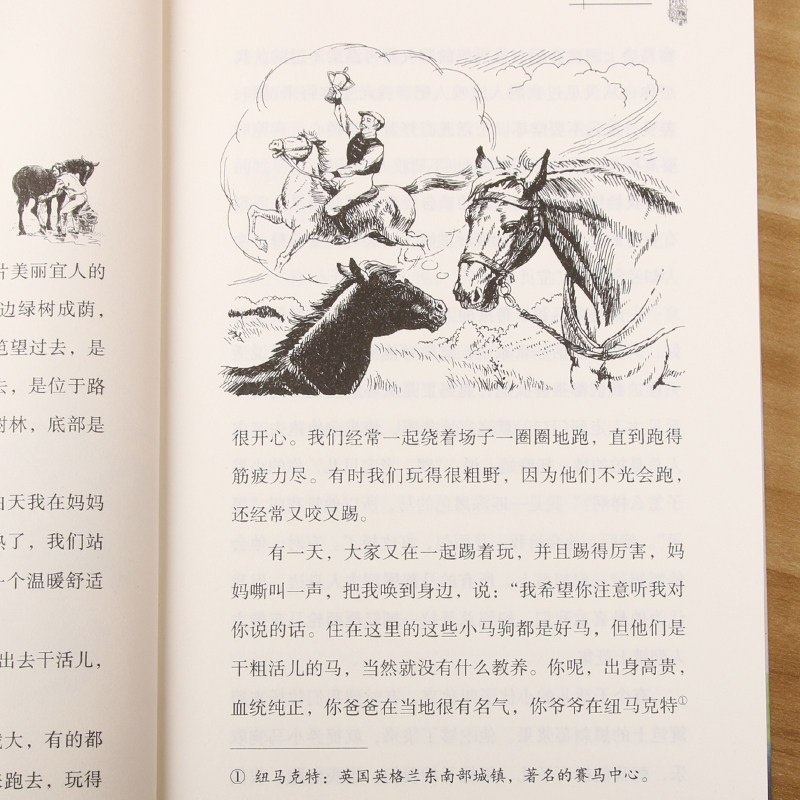 片美丽宜人的
边绿树成荫，
笆望过去，是
去，是位于路
树林，底部是
白天我在妈妈
热了，我们站
一个温暖舒适
出去干活儿，
大，有的都
来跑去，玩得
很开心。我们经常一起绕着场子一圈圈地跑，直到跑得
筋疲力尽。有时我们玩得很粗野，因为他们不光会跑，
还经常又咬又踢。
有一天，大家又在一起踢着玩，并且踢得厉害，妈
妈嘶叫一声，把我唤到身边，说：“我希望你注意听我对
你说的话。住在这里的这些小马驹都是好马，但他们是
干粗活儿的马，当然就没有什么教养。你呢，出身高贵，
血统纯正，你爸爸在当地很有名气，你爷爷在纽马克特①
① 纽马克特：英国英格兰东南部城镇，著名的赛马中心。